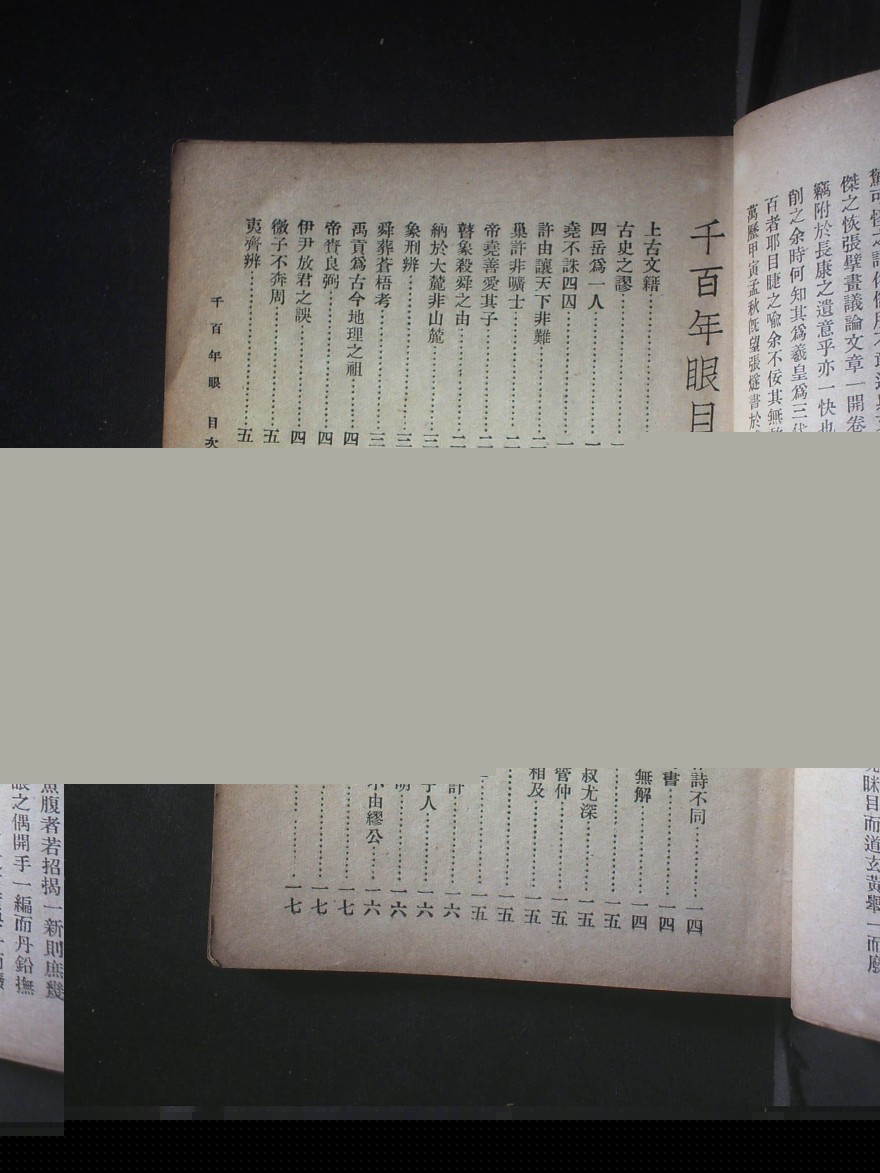 千百年眼目
上古文籍 一
古史之謬 一
四岳爲一人 一
堯不誅四囚 一
許由讓天下非難 二
巢許非曠士 二
帝堯善愛其子 二
瞽象殺舜之由 二
納於大麓非山麓 三
象刑辨 三
舜葬蒼梧考 三
禹貢爲古今地理之祖 四
帝賚良弼 四
伊尹放君之誤 四
微子不奔周 五
夷齊辨 五
千百年眼 目次
詩不同 一四
書 一四
無解 一四
一五
叔尤深 一五
管仲 一五
相及 一五
一五
一五
計 一六
子人 一六
明 一六
不由繆公 一六
一七
一七
一七
傑之恢張擘畫議論文章一開卷
竊附於長康之遺意乎亦一快也
削之余時何知其爲羲皇爲三代
百者耶目睫之喩余不佞其無
萬歷甲寅孟秋旣望張燧書於
眯目而道玄黃犖一而廢
魚腹者若招揭一新則庶幾
眼之偶開手一編而丹鉛撫